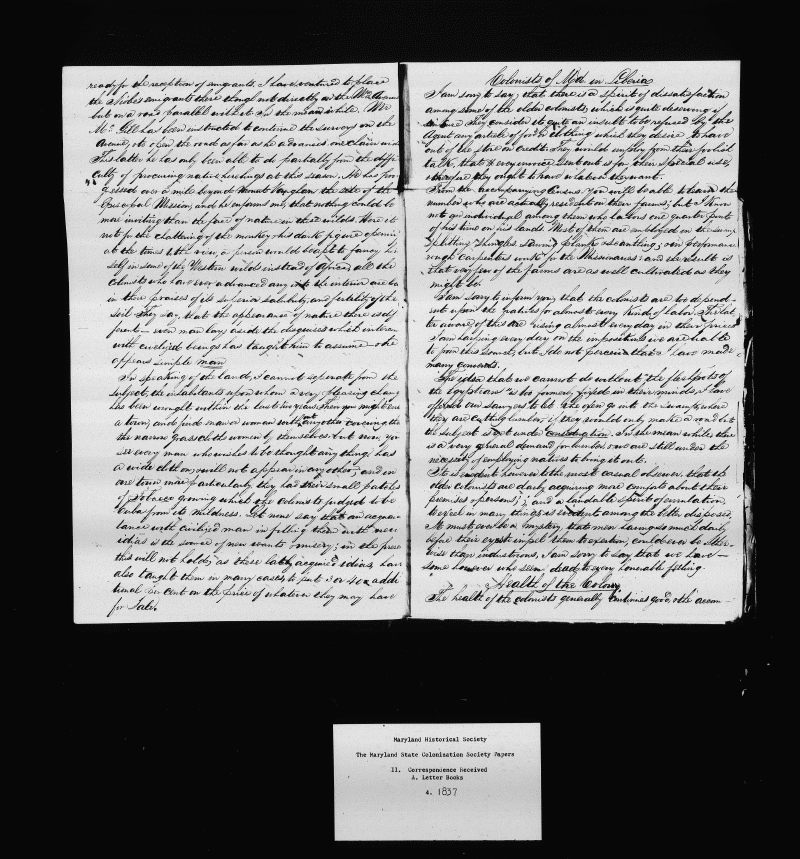 ready for the reception of emigrants. I have ventured to place
the Niobe's emigrants there though not directly on the Avenue
but on a road parallel with it in the meanwhile. The
Mr. Gill has been instructed to continue the survey on the
Avenue, & to open the road as far as he advances one chain wide
This latter he has only been able to do partially from the diffi-
culty of procuring native hirelings at this season. He has pro-
gressed over a mile beyond the site of the
Episcopal Mission, and he informs me that nothing could be
more inviting than the face of nature in these wilds. Were it
not for the chattering of the monkey & his dark figure opening
at the times to the view, a person would be apt to fancy him
self in some of the Western wilds instead of Africa; all the
colonists who have ever advanced any into the interior are
in their praises of its superior salubrity, and fertility of the
soil They say, that the appearance of nature there is dif
ferent— even man lays aside the disguises which
with civilized beings has taught him to assume & he
appears simple man
In speaking of the land, I cannot separate from the
subject, the inhabitants upon whom a very pleasing chang
has been wrought within the last two years. Then you might
a town, and find man or woman without any other covering than
the narrow grass cloth women by themselves but now, you
see every man who wishes to be thought any thing has
a wide cloth on, & will not appear in any other; and in
one town more particularly they had their small patches
of Tobacco growing which the colonists judged to be
Cuba from its mildness. Let none say that an acquain-
tance with civilized man in filling them with new
ideas is the source of new wants & misery; in the present
this will not hold, as these lately acquired ideas have
also taught them in many cases to put 30 or 40 addi
tional per cent on the price of whatever they may have
for Sale.
Colonists of Md in Liberia
I am sorry to say, that there is a spirit of dissatisfaction
among some of the older colonists, which is quite deserving of
They consider it quite an insult to be refused by the
Agent any article of food & clothing which they desire to have
out of the store on credit. They would imply from their foolish
talk, that every invoice sent out is for their special use,
& therefore they ought to have what they want.
From the accompanying Census you will be able to learn the
number who are actually resident on their farms; but I know
not an individual among them who labors one quarter part
of his time on his lands. Most of them are employed on the
splitting shingles, sawing planks & scantling; or in performance
rough carpenters work for the Missionaries: and the result is
that very few of the farms are as well cultivated as they
might be.
I am sorry to inform you, that the colonists are too depend-
ent upon the natives for almost every kind of labor. The latter
be aware of this are rising almost every day in their prices
I am harping every day on the impositions we are liable
to from this source, but I do not perceive that I have made
many converts.
The idea that we cannot do without "the flesh pots of
the Egyptians" is too formerly fixed in their minds, I have
offered our sawyers to let them open go into the swamps, where
they are cutting lumber, if they would only make a road but
the subject is yet under consideration. In the mean while there
is a very great demand for lumber & we are still under the
necessity of employing natives to bring it out.
It is evident however to the most casual observer, that the
older colonists are daily acquiring more comforts about their
premises & persons; and a laudable spirit of emulation,
to excel in many things is evident among the better disposed.
It must ever be a mystery, that men having so much daily
before their eyes to impel them to exertion, could ever be other-
wise than industrious, I am sorry to say that we have—
some however who seem dead to every honorable feeling.
Health of the Colony
The health of the colonists generally continues good, & the accom-
Maryland Historical Society
The Maryland State Colonization Society Papers
II. Correspondence Received
A. Letter Books
4. 1837